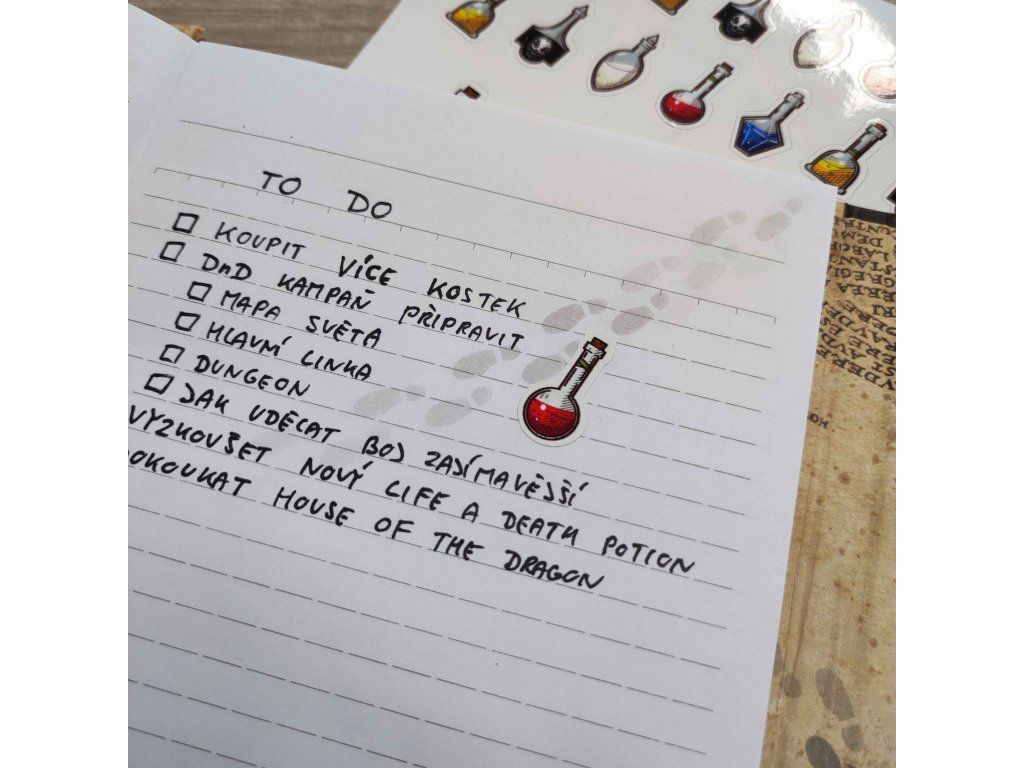 TO DO
☐ KOUPIT VÍCE KOSTEK
☐ DnD KAMPAŇ PŘIPRAVIT
☐ MAPA SVĚTA
☐ HLAVNÍ LINKA
☐ DUNGEON
☐ JAK UDĚLAT BOJ ZAJÍMAVĚJŠÍ
VYZKOUŠET NOVÝ LIFE A DEATH POTION
OKOUKAT HOUSE OF THE DRAGON